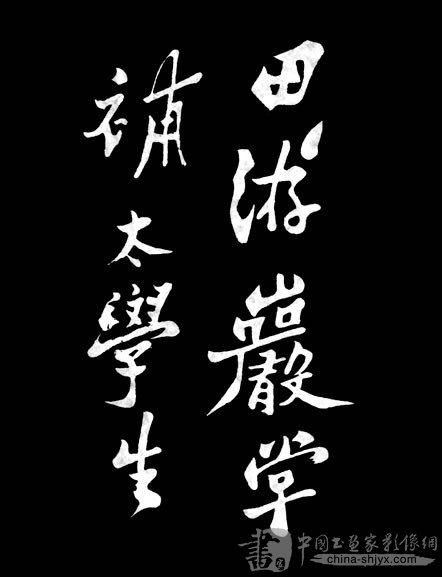 田游巖堂
補太學生
書
中国书画家影像网
china-shjyx.com